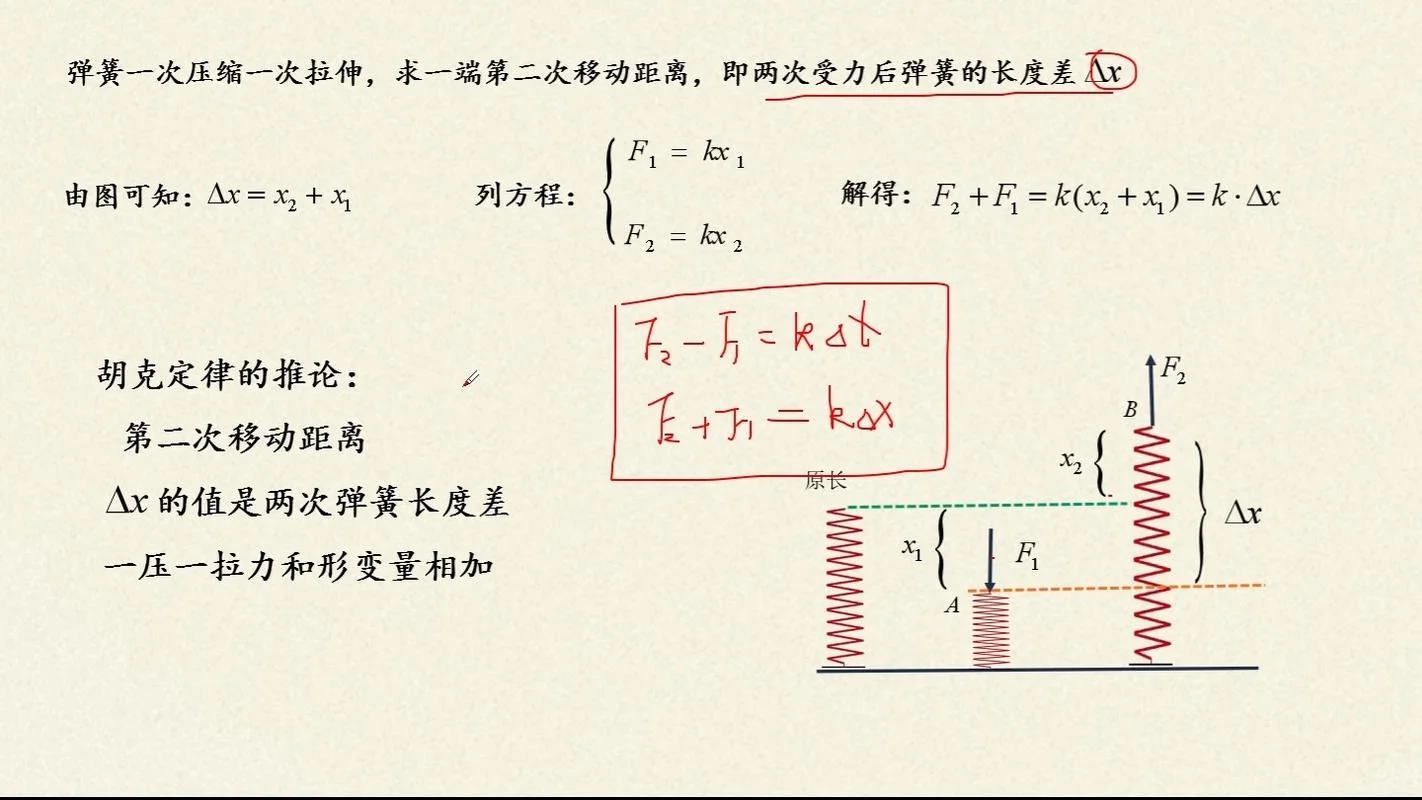 弹簧一次压缩一次拉伸，求一端第二次移动距离，即两次受力后弹簧的长度差 Δx
由图可知：Δx = x₂ + x₁
列方程：
F₁ = kx₁
F₂ = kx₂
解得：F₂ + F₁ = k(x₂ + x₁) = k · Δx
F₂ - F₁ = kΔx
F₂ + F₁ = kΔx
胡克定律的推论：
第二次移动距离
Δx 的值是两次弹簧长度差
一压一拉力和形变量相加
原长
x₁
F₁
A
F₂
B
x₂
Δx